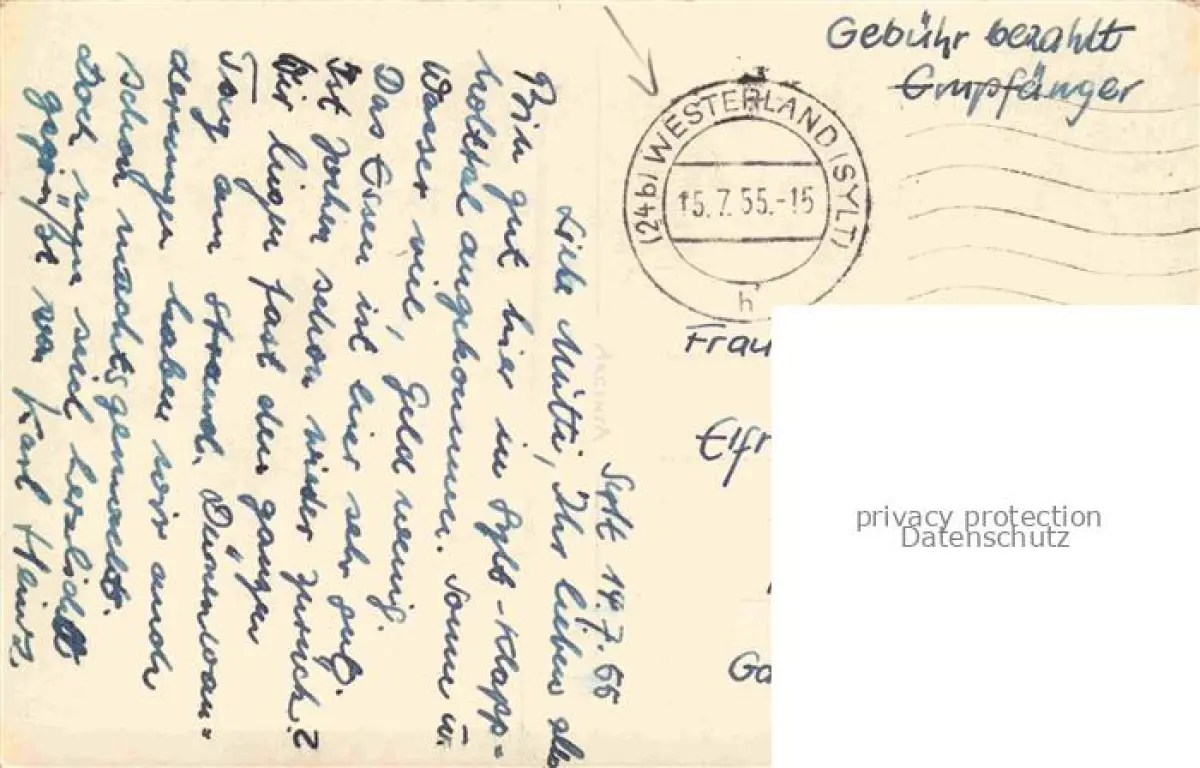 Gebühr bezahlt
Empfänger
(24b) WESTERLAND (SYLT)
15.7.55.-15
h
Frau
Elfr
Ga
privacy protection
Datenschutz
Sylt 14.7.55
Liebe Mutti, Ihr lieben
Bin gut hier in Sylt-Klapp=
holttal angekommen. Sonne u.
Wasser viel, Geld wenig.
Das Essen ist hier sehr gut.
Ist schon wieder zurück?
Wir liegen fast den ganzen
Tag am Strand. Dünenwan=
derungen haben wir auch
schon nachts gemacht.
Doch nun seid herzlichst
gegrüßt von Karl Heinz.